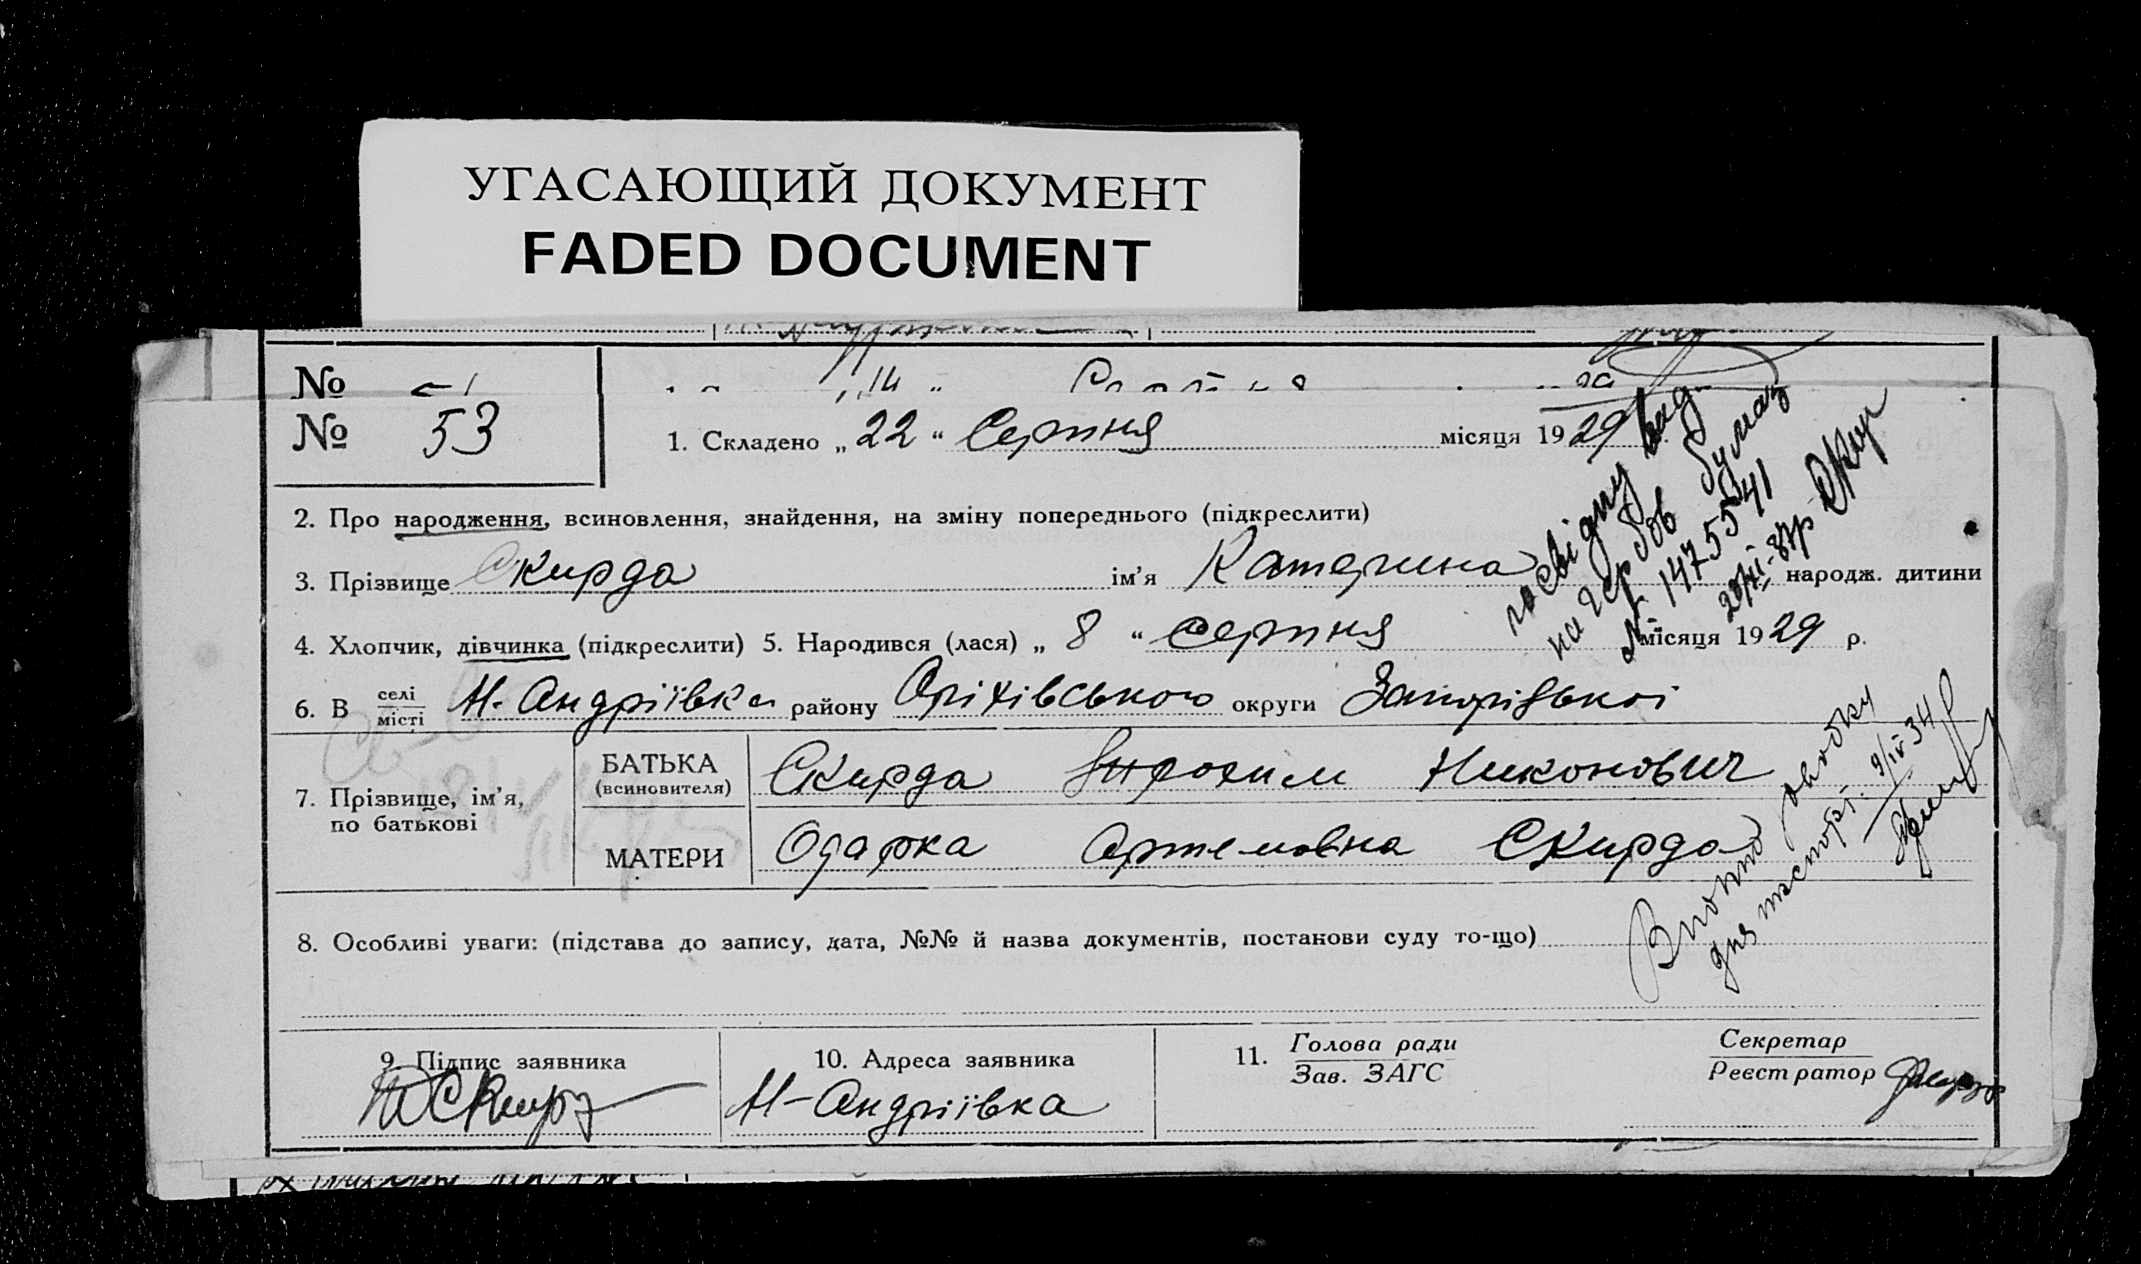 УГАСАЮЩИЙ ДОКУМЕНТ
FADED DOCUMENT
№
№ 53
1. Складено „ 22 “ Серпня місяця 1929
2. Про народження, всиновлення, знайдення, на зміну попереднього (підкреслити)
3. Прізвище Скирда ім’я Катерина народж. дитини
4. Хлопчик, дівчинка (підкреслити) 5. Народився (лася) „ 8 “ серпня місяця 1929 р.
6. В селі місті Н-Андріївка району Оріхівського округи Запорізької
7. Прізвище, ім’я, по батькові
БАТЬКА (всиновителя) Скирда Никонович
МАТЕРИ Одарка Артемовна Скирда
8. Особливі уваги: (підстава до запису, дата, №№ й назва документів, постанови суду то-що)
9. Підпис заявника
Скирда
10. Адреса заявника
Н-Андріївка
11. Голова ради
Зав. ЗАГС
Секретар
Реєстратор
посвідку вид.
на гербов бумаз
№ 1475541
для паспорт. 9/IV 34